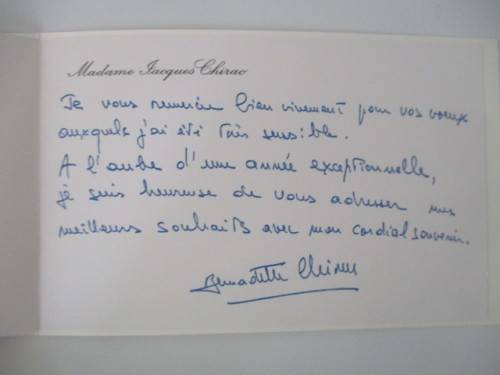 Madame Jacques Chirac
Je vous remercie bien vivement pour vos voeux
auxquels j'ai été très sensible.
A l'aube d'une année exceptionnelle,
je suis heureuse de vous adresser mes
meilleurs souhaits avec mon cordial souvenir.
Bernadette Chirac